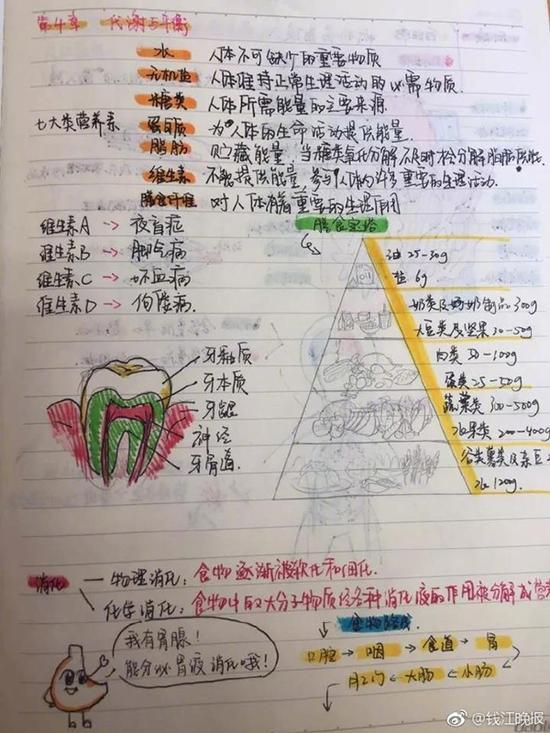 第4章 代谢与平衡
水 人体不可缺少的重要物质
无机盐 人体维持正常生理活动的必需物质.
糖类 人体所需能量的主要来源
七大类营养素 蛋白质 为人体的生命活动提供能量.
脂肪 贮藏能量,当糖类氧化分解不及时才会分解脂肪供能.
维生素 不能提供能量,参与人体内许多重要的生理活动.
膳食纤维 对人体有着重要的生理作用
维生素A → 夜盲症
维生素B → 脚气病
维生素C → 坏血病
维生素D → 佝偻病
膳食宝塔
油 25-30g
盐 6g
奶类及奶制品 300g
大豆类及坚果 30-50g
肉类 50-100g
蛋类 25-50g
蔬菜类 300-500g
水果类 200-400g
谷类薯类及杂豆
水 1200g.
牙釉质
牙本质
牙龈
神经
牙骨道
消化
物理消化: 食物逐渐被软化和细化.
化学消化: 食物中的大分子物质经各种消化液的作用被分解成营
我有胃腺!
能分泌胃液消化哦!
口腔→咽→食道→胃
肛门←大肠←小肠
@钱江晚报